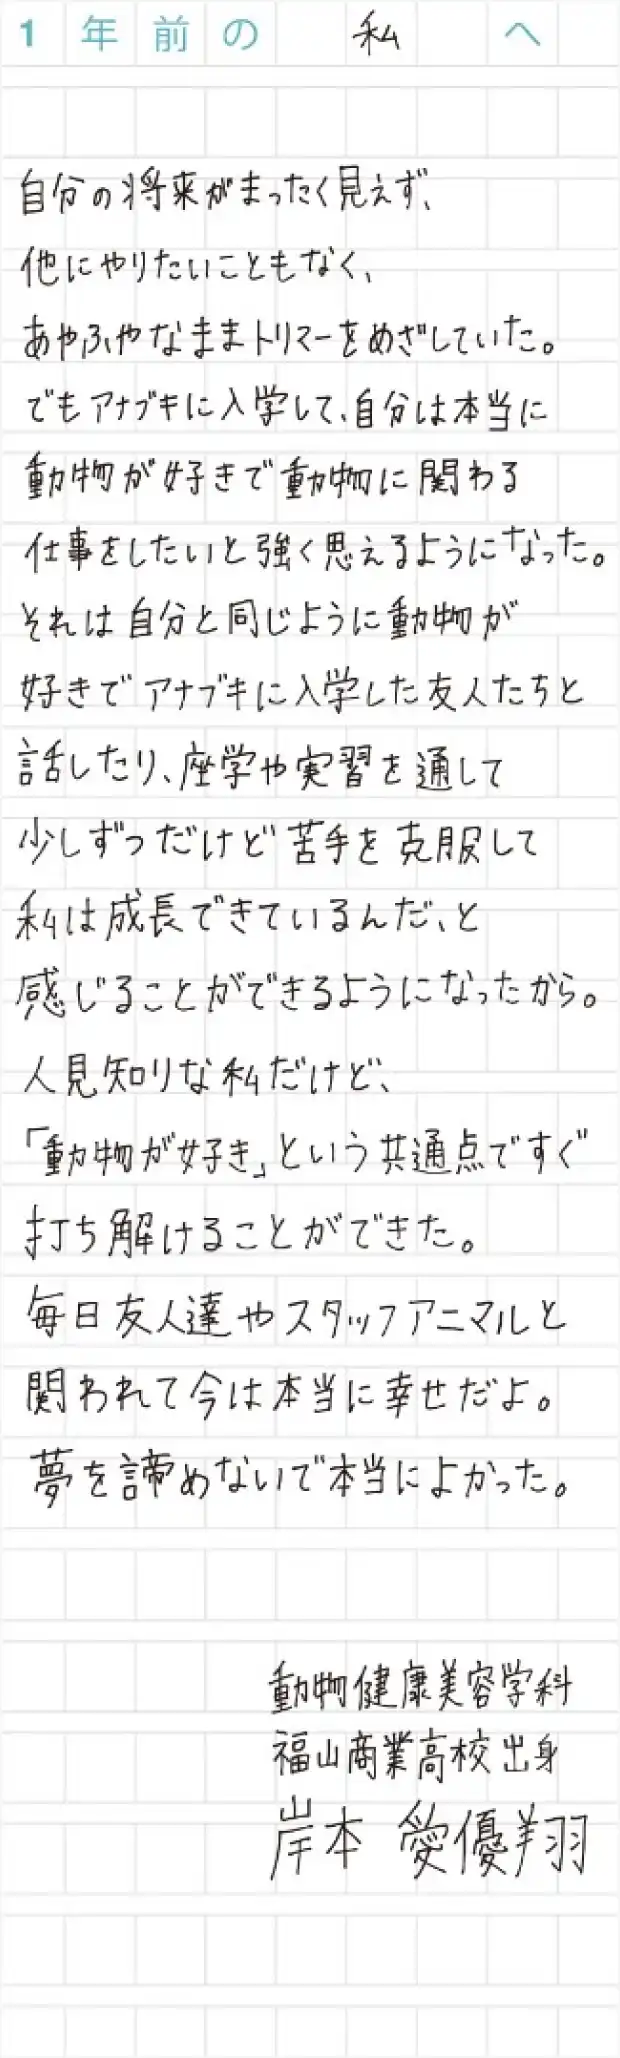 1年前の 私 へ
自分の将来がまったく見えず、
他にやりたいこともなく、
あやふやなままトリマーをめざしていた。
でもアナブキに入学して、自分は本当に
動物が好きで動物に関わる
仕事をしたいと強く思えるようになった。
それは自分と同じように動物が
好きでアナブキに入学した友人たちと
話したり、座学や実習を通して
少しずつだけど苦手を克服して
私は成長できているんだ、と
感じることができるようになったから。
人見知りな私だけど、
「動物が好き」という共通点ですぐ
打ち解けることができた。
毎日友人達やスタッフアニマルと
関われて今は本当に幸せだよ。
夢を諦めないで本当によかった。
動物健康美容学科
福山商業高校出身
岸本 愛優翔